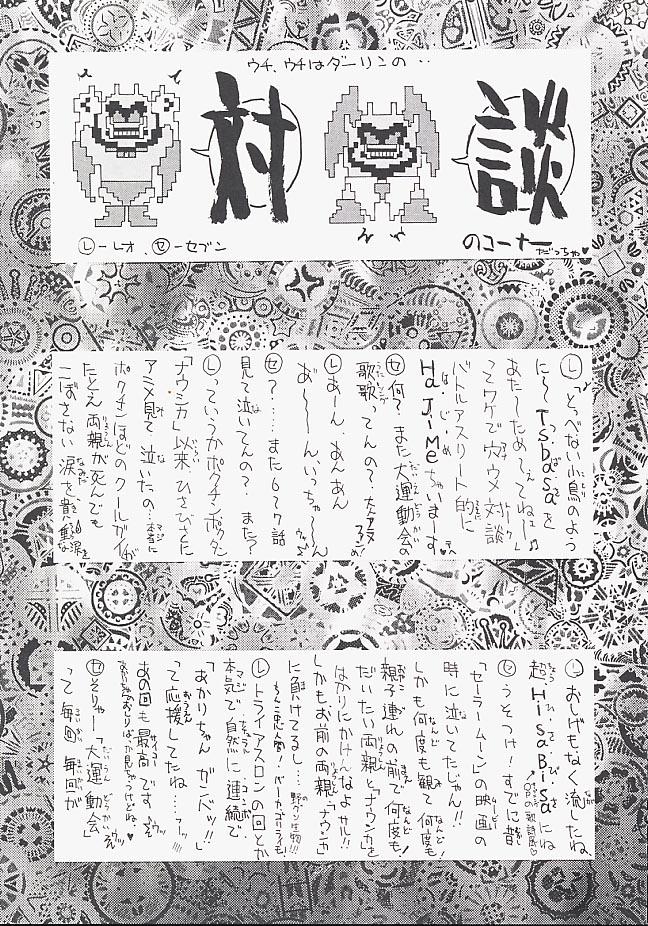 ウチ、ウチはダーリンの‥
対談
のコーナーだっちゃ♥
Ⓛーレオ、セーセブン
Ⓛ「とべない小鳥のよう
に〜Tsubasaを
あた〜ためえてねェ〜」♫
ってワケでウワメ対談
バトルアスリート的に
HaJiMeちゃいまーす♥
セ何?また大運動会の
歌歌ってんの?
Ⓛあーん、あんあん
あ〜〜んいっちゃ〜〜ん
セ?‥‥また6て7話
見て泣いてんの?また?
Ⓛっていうかボクチンボクタン
「ナウシカ」以来ひさびさに
アニメ見て泣いたの。
ボクチンほどのクールガイが
たとえ両親が死んでも
こぼさない涙を
Ⓛおしげもなく流したね、
超HiSaBiSaにね
セうそつけ!すでに昔
「セーラームーン」の映画の
時に泣いてたじゃん!!
しかも何度も観て何度も!
親子連れの前で何度も!
だいたい両親と「ナウシカ」を
はかりにかけんなよサル!!
しかもお前の両親「ナウシカ」
に負けてるし‥‥
Ⓛトライアスロンの回とか
本気で自然に連続で
「あかりちゃんガンバッ!!」
って応援してたね‥‥
あの回も最高です。
セそりゃー「大運動会」
って毎回毎回が